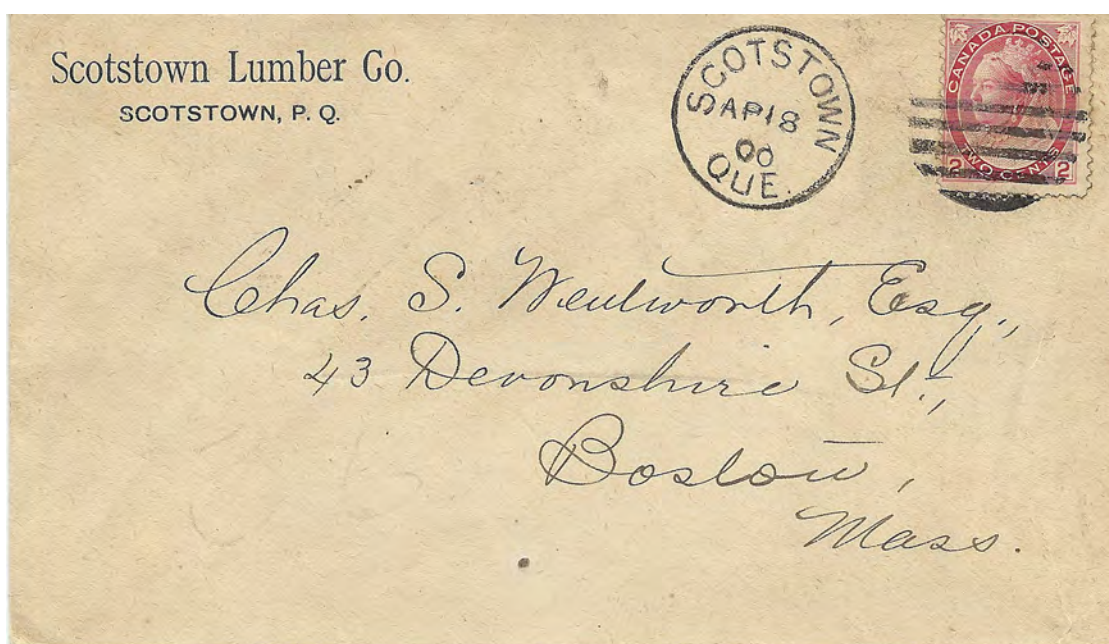 Scotstown Lumber Co.
SCOTSTOWN, P. Q.
SCOTSTOWN
AP 18
00
QUE.
CANADA POSTAGE
TWO CENTS
2 2
Chas. S. Wentworth, Esq.,
43 Devonshire St.,
Boston,
Mass.